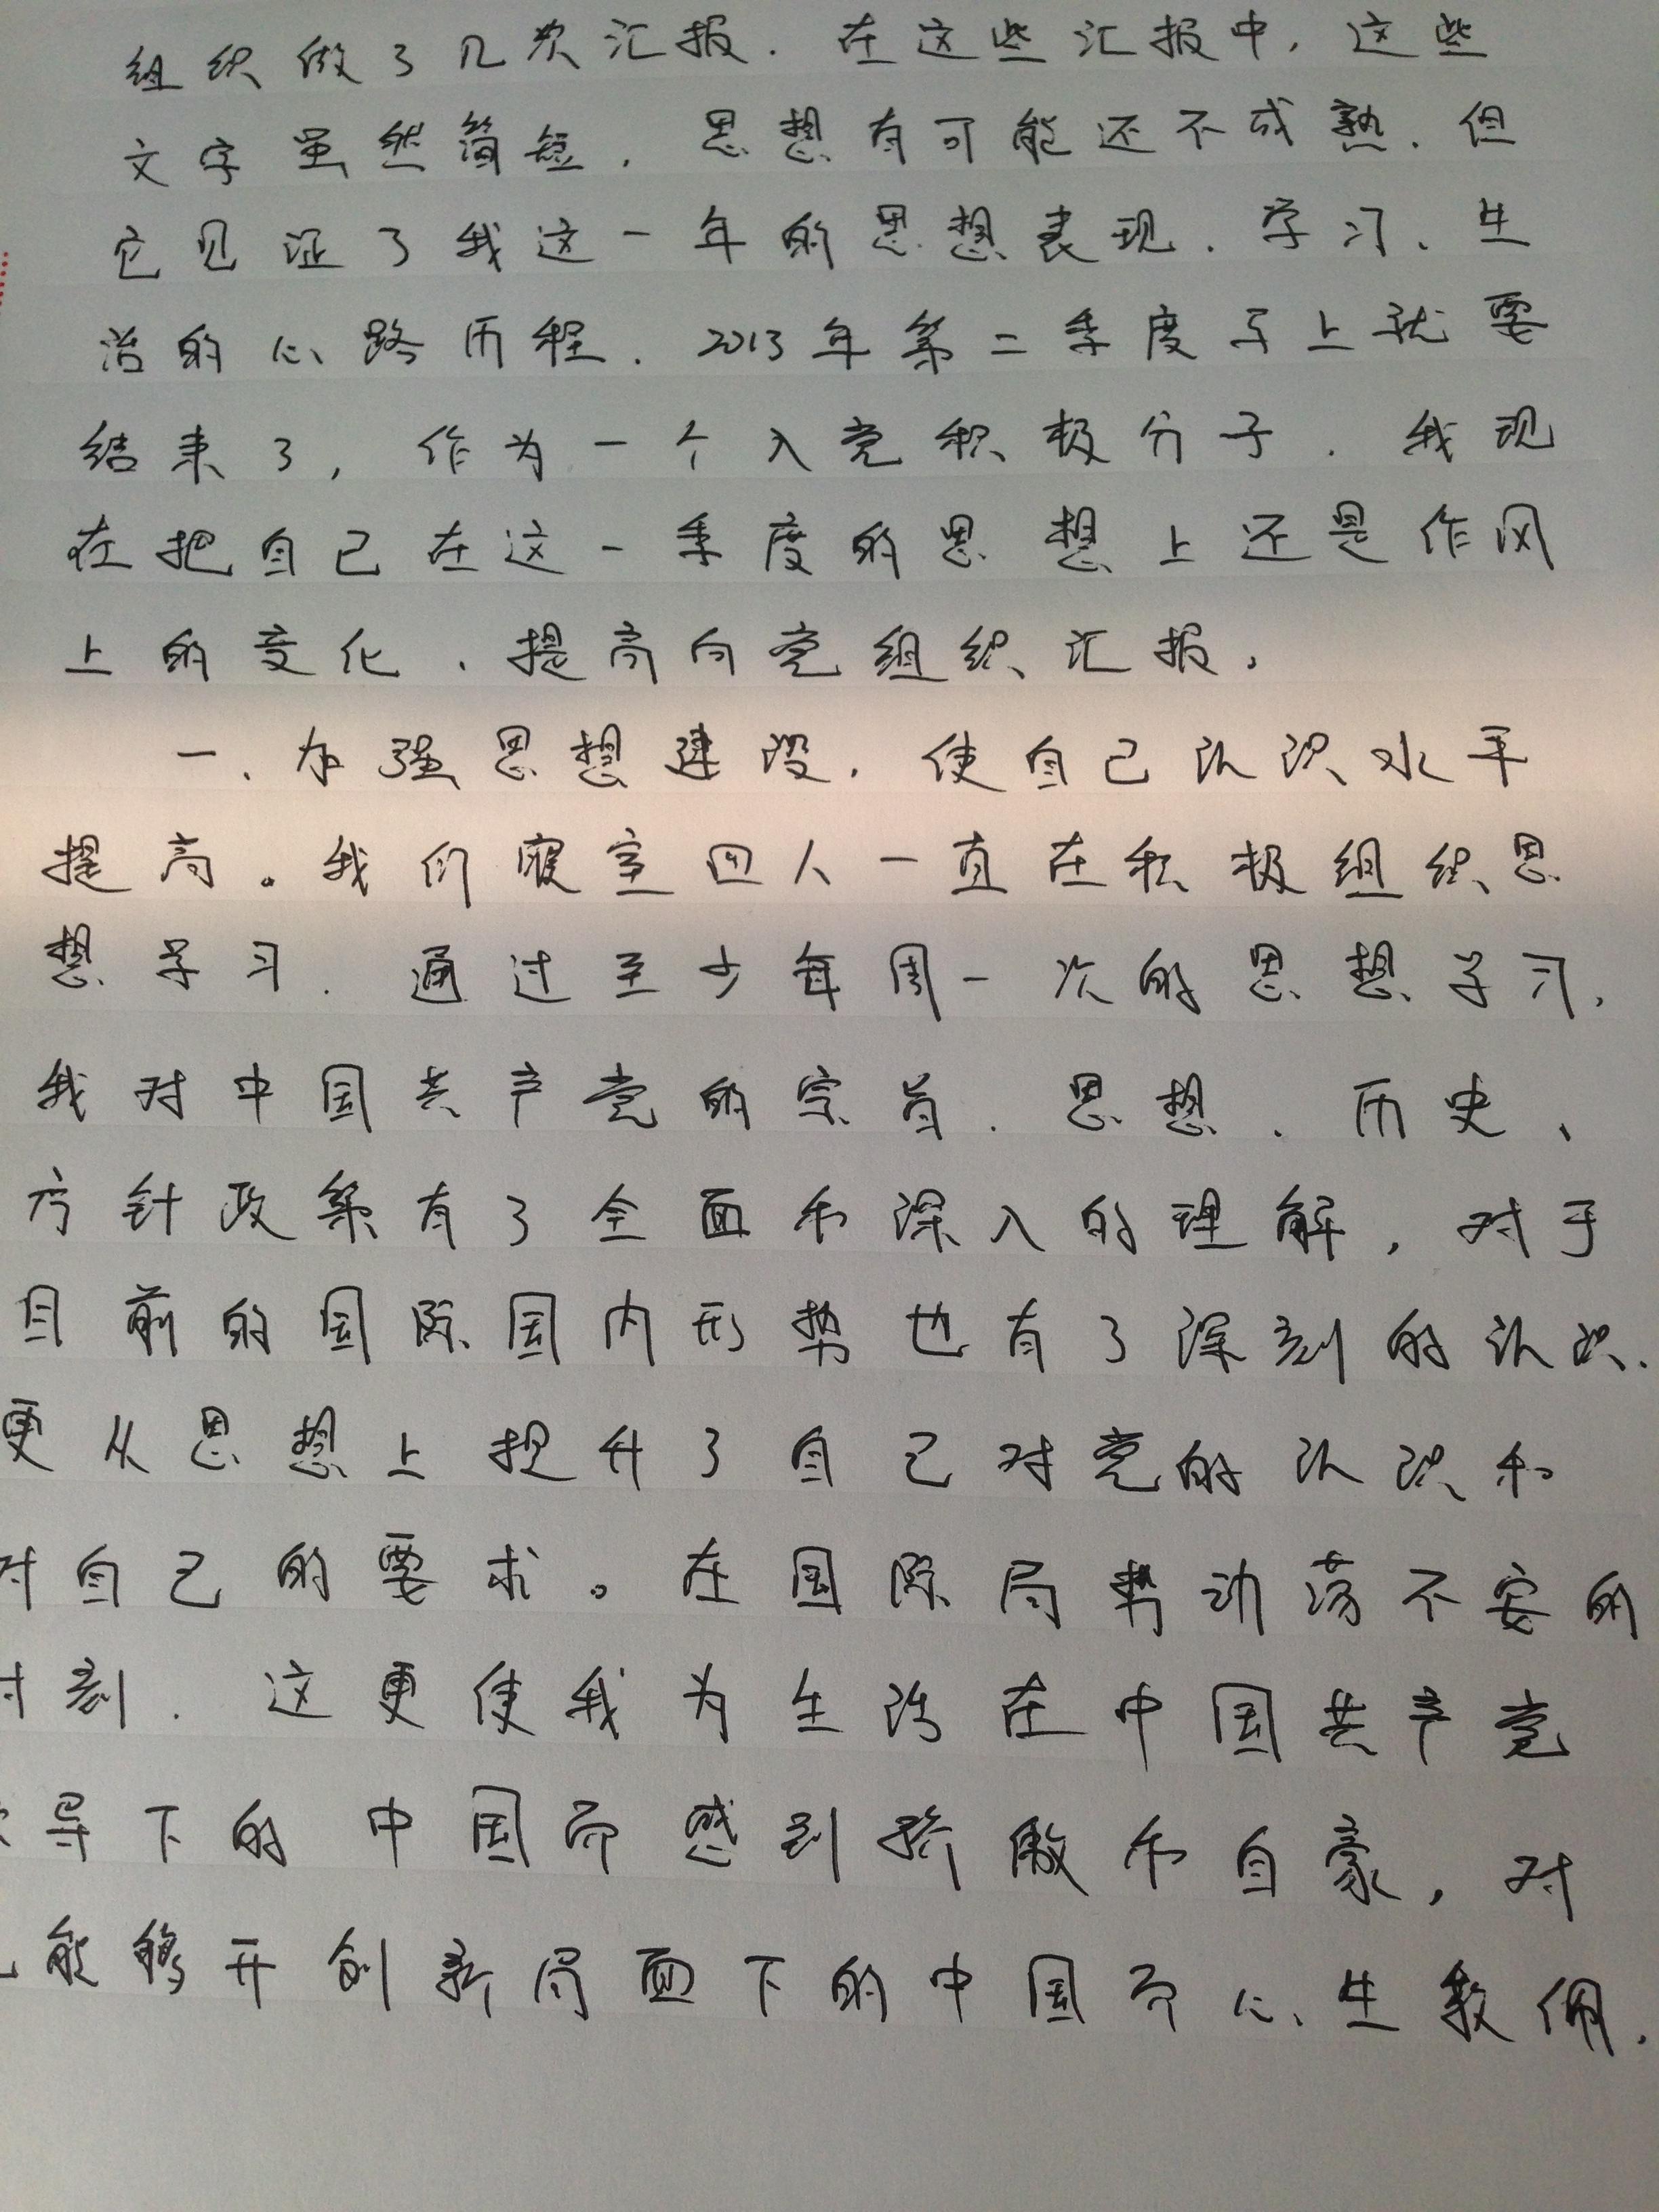 组织做了几次汇报.在这些汇报中,这些
文字虽然简短,思想有可能还不成熟.但
它见证了我这一年的思想表现、学习、生
活的心路历程.2013年第二季度马上就要
结束了,作为一个入党积极分子.我现
在把自己在这一季度的思想上还是作风
上的变化、提高向党组织汇报.
一、加强思想建设.使自己认识水平
提高。我们寝室四人一直在积极组织思
想学习.通过至少每周一次的思想学习,
我对中国共产党的宗旨、思想、历史、
方针政策有了全面和深入的理解,对于
目前的国际国内形势也有了深刻的认识.
更从思想上提升了自己对党的认识和
对自己的要求。在国际局势动荡不安的
时刻.这更使我为生活在中国共产党
领导下的中国而感到骄傲和自豪,对
能够开创新局面下的中国而心生敬佩.